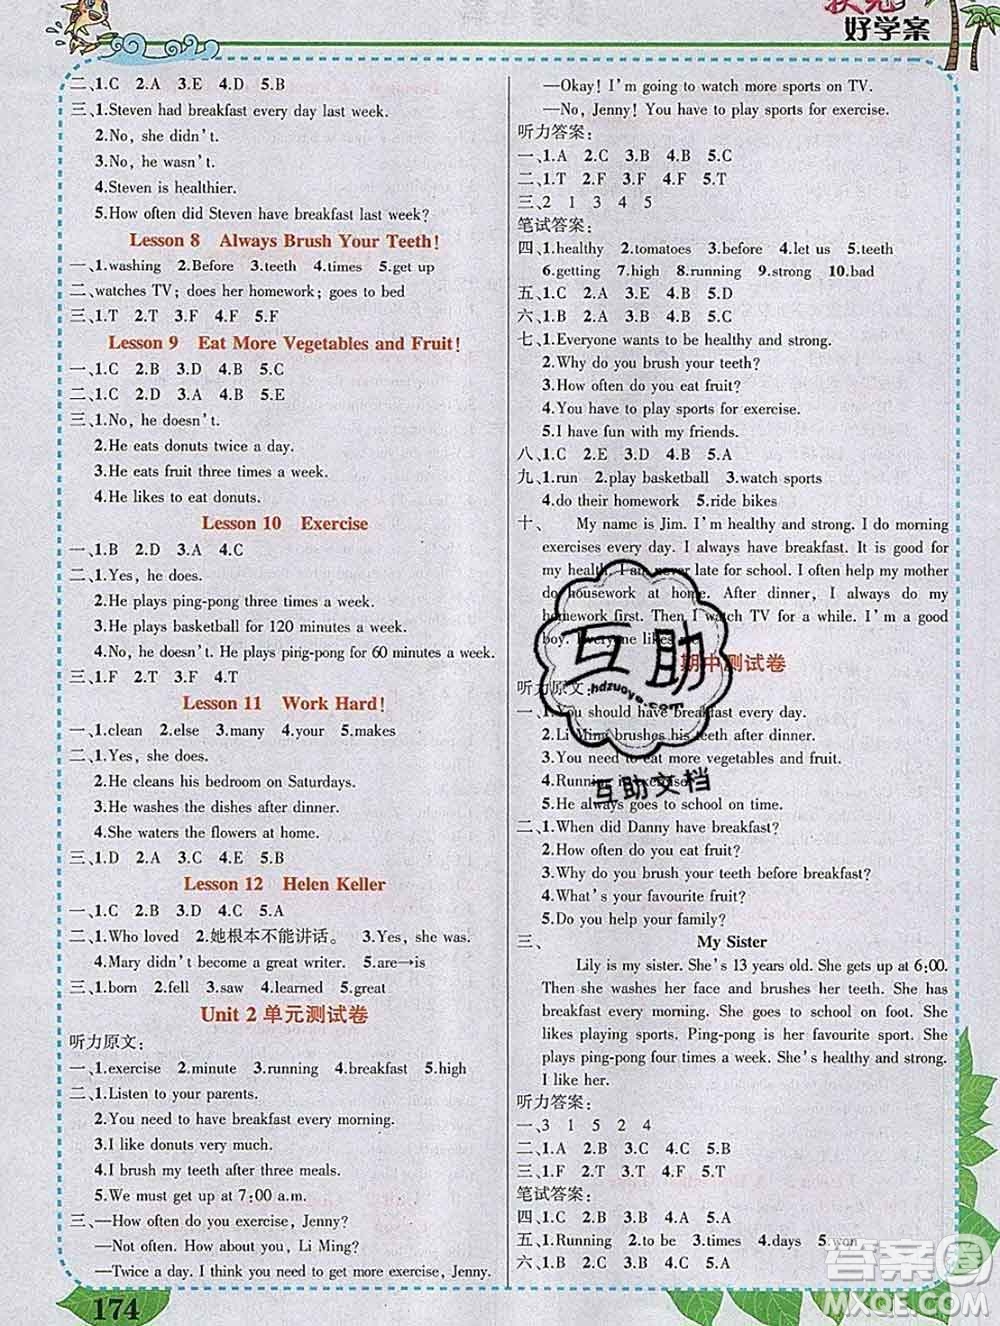 状元
好学案
二、1.C 2.A 3.E 4.D 5.B
三、1.Steven had breakfast every day last week.
2.No, she didn't.
3.No, he wasn't.
4.Steven is healthier.
5.How often did Steven have breakfast last week?
Lesson 8 Always Brush Your Teeth!
一、1.washing 2.Before 3.teeth 4.times 5.get up
二、watches TV; does her homework; goes to bed
三、1.T 2.T 3.F 4.F 5.F
Lesson 9 Eat More Vegetables and Fruit!
一、1.C 2.B 3.D 4.B 5.C
二、1.C 2.D 3.A 4.B 5.E
三、1.No, he doesn't.
2.He eats donuts twice a day.
3.He eats fruit three times a week.
4.He likes to eat donuts.
Lesson 10 Exercise
一、1.B 2.D 3.A 4.C
二、1.Yes, he does.
2.He plays ping-pong three times a week.
3.He plays basketball for 120 minutes a week.
4.No, he doesn't. He plays ping-pong for 60 minutes a week.
三、1.T 2.F 3.F 4.T
Lesson 11 Work Hard!
一、1.clean 2.else 3.many 4.your 5.makes
二、1.Yes, she does.
2.He cleans his bedroom on Saturdays.
3.He washes the dishes after dinner.
4.She waters the flowers at home.
三、1.D 2.A 3.C 4.E 5.B
Lesson 12 Helen Keller
一、1.C 2.B 3.D 4.C 5.A
二、1.Who loved 2.她根本不能讲话。 3.Yes, she was.
4.Mary didn't become a great writer. 5.are→is
三、1.born 2.fell 3.saw 4.learned 5.great
Unit 2 单元测试卷
听力原文：
一、1.exercise 2.minute 3.running 4.breakfast 5.high
二、1.Listen to your parents.
2.You need to have breakfast every morning.
3.I like donuts very much.
4.I brush my teeth after three meals.
5.We must get up at 7:00 a.m.
三、—How often do you exercise, Jenny?
—Not often. How about you, Li Ming?
—Twice a day. I think you need to get more exercise, Jenny.
174
—Okay! I'm going to watch more sports on TV.
—No, Jenny! You have to play sports for exercise.
听力答案：
一、1.A 2.C 3.B 4.B 5.C
二、1.T 2.F 3.F 4.F 5.T
三、2 1 3 4 5
笔试答案：
四、1.healthy 2.tomatoes 3.before 4.let us 5.teeth
6.getting 7.high 8.running 9.strong 10.bad
五、1.C 2.A 3.B 4.C 5.B
六、1.B 2.A 3.D 4.B 5.C
七、1.Everyone wants to be healthy and strong.
2.Why do you brush your teeth?
3.How often do you eat fruit?
4.You have to play sports for exercise.
5.I have fun with my friends.
八、1.C 2.E 3.D 4.B 5.A
九、1.run 2.play basketball 3.watch sports
4.do their homework 5.ride bikes
十、 My name is Jim. I'm healthy and strong. I do morning
exercises every day. I always have breakfast. It is good for
my health. I am never late for school. I help my mother
do housework at home. After dinner, I always do my
homework first. Then I watch TV for a while. I'm a good
boy. Everyone likes
期中测试卷
听力原文：
一、1.You should have breakfast every day.
2.Li Ming brushes his teeth after dinner.
3.You need to eat more vegetables and fruit.
4.Running is exercise.
5.He always goes to school on time.
二、1.When did Danny have breakfast?
2.How often do you eat fruit?
3.Why do you brush your teeth before breakfast?
4.What's your favourite fruit?
5.Do you help your family?
三、 My Sister
Lily is my sister. She's 13 years old. She gets up at 6:00.
Then she washes her face and brushes her teeth. She has
breakfast every morning. She goes to school on foot. She
likes playing sports. Ping-pong is her favourite sport. She
plays ping-pong four times a week. She's healthy and strong.
I like her.
听力答案：
一、3 1 5 2 4
二、1.A 2.B 3.C 4.C 5.A
三、1.F 2.T 3.F 4.T 5.T
笔试答案：
四、1.C 2.B 3.B 4.C 5.A
五、1.Running 2.be 3.times 4.days 5.won
六、1.B 2.C 3.A 4.B 5.C
互助
hdzuoye.com
互助文档
答案圈
MXQE.COM